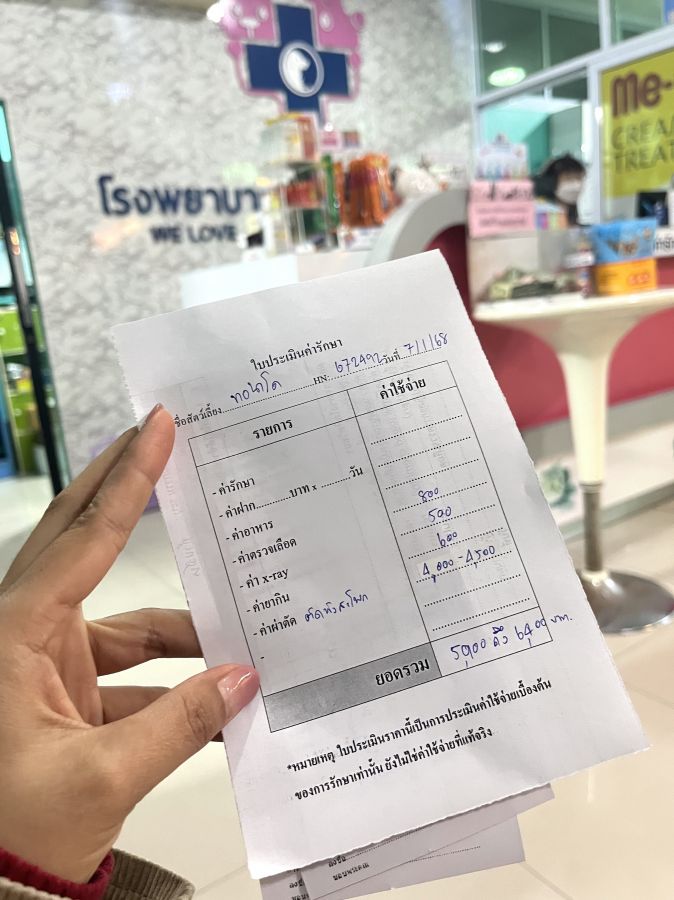 โรงพยาบา
WE LOVE
me-
CREA
TREAT
ใบประเมินค่ารักษา
ชื่อสัตว์เลี้ยง HN: 672492 วันที่ 7/1/68
รายการ ค่าใช้จ่าย
- ค่ารักษา
- ค่าฝาก.............บาท x ............วัน
- ค่าอาหาร
- ค่าตรวจเลือด 800
- ค่า x-ray 500
- ค่ายากิน 600
- ค่าผ่าตัด ตัดหัวสะโพก 4,000 - 4,500
-
ยอดรวม 5,900 ถึง 6,400 บาท.
*หมายเหตุ ใบประเมินราคานี้เป็นการประเมินค่าใช้จ่ายเบื้องต้น
ของการรักษาเท่านั้น ยังไม่ใช่ค่าใช้จ่ายที่แท้จริง